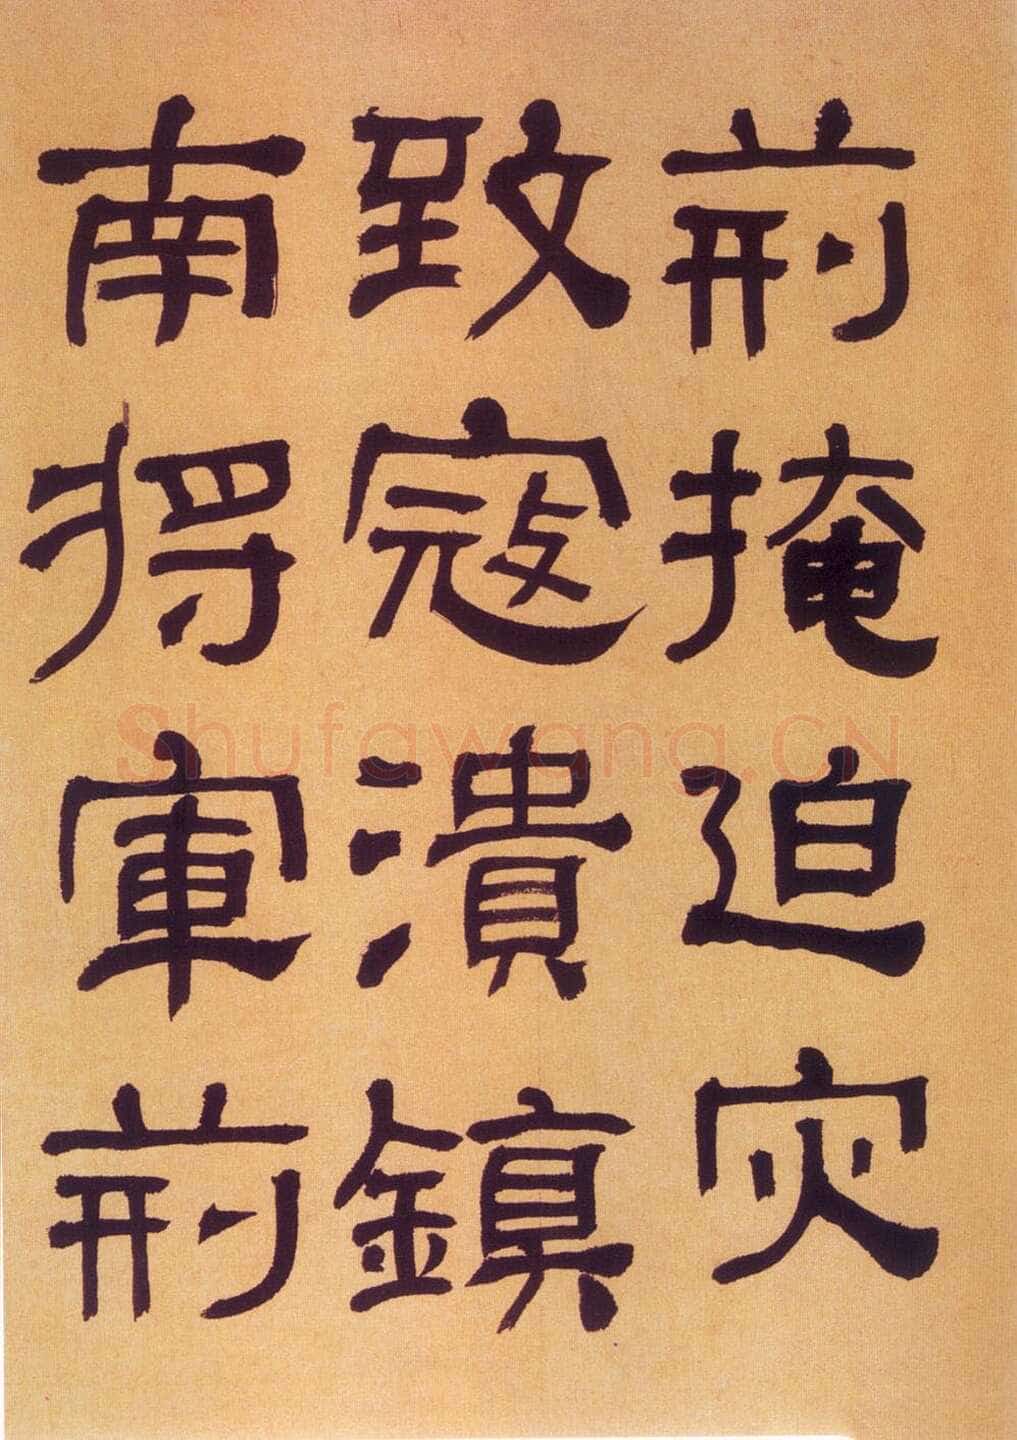 荊掩迫灾
致寇潰鎮
南将軍荊
Shufawang.CN